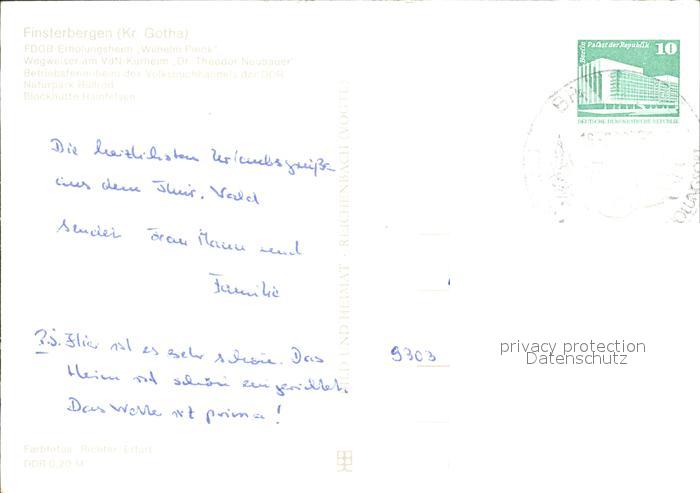 Finsterbergen (Kr. Gotha)
FDGB-Erholungsheim „Wilhelm Pieck"
Wegweiser am VdN-Kurheim „Dr. Theodor Neubauer"
Betriebsferienheim des Volksbuchhandels der DDR
Naturpark
Blockhütte Hainfelsen
Berlin Palast der Republik 10
DEUTSCHE DEMOKRATISCHE REPUBLIK
Die herzlichsten Urlaubsgrüße
aus dem Thür. Wald
sendet Frau Mann und
Familie
P.S. Hier ist es sehr schön. Das
Heim ist schön eingerichtet.
Das Wetter ist prima!
9303
privacy protection
Datenschutz
BILD UND HEIMAT · REICHENBACH (VOGTL)
Farbfotos: Richter, Erfurt
DDR 0,20 M